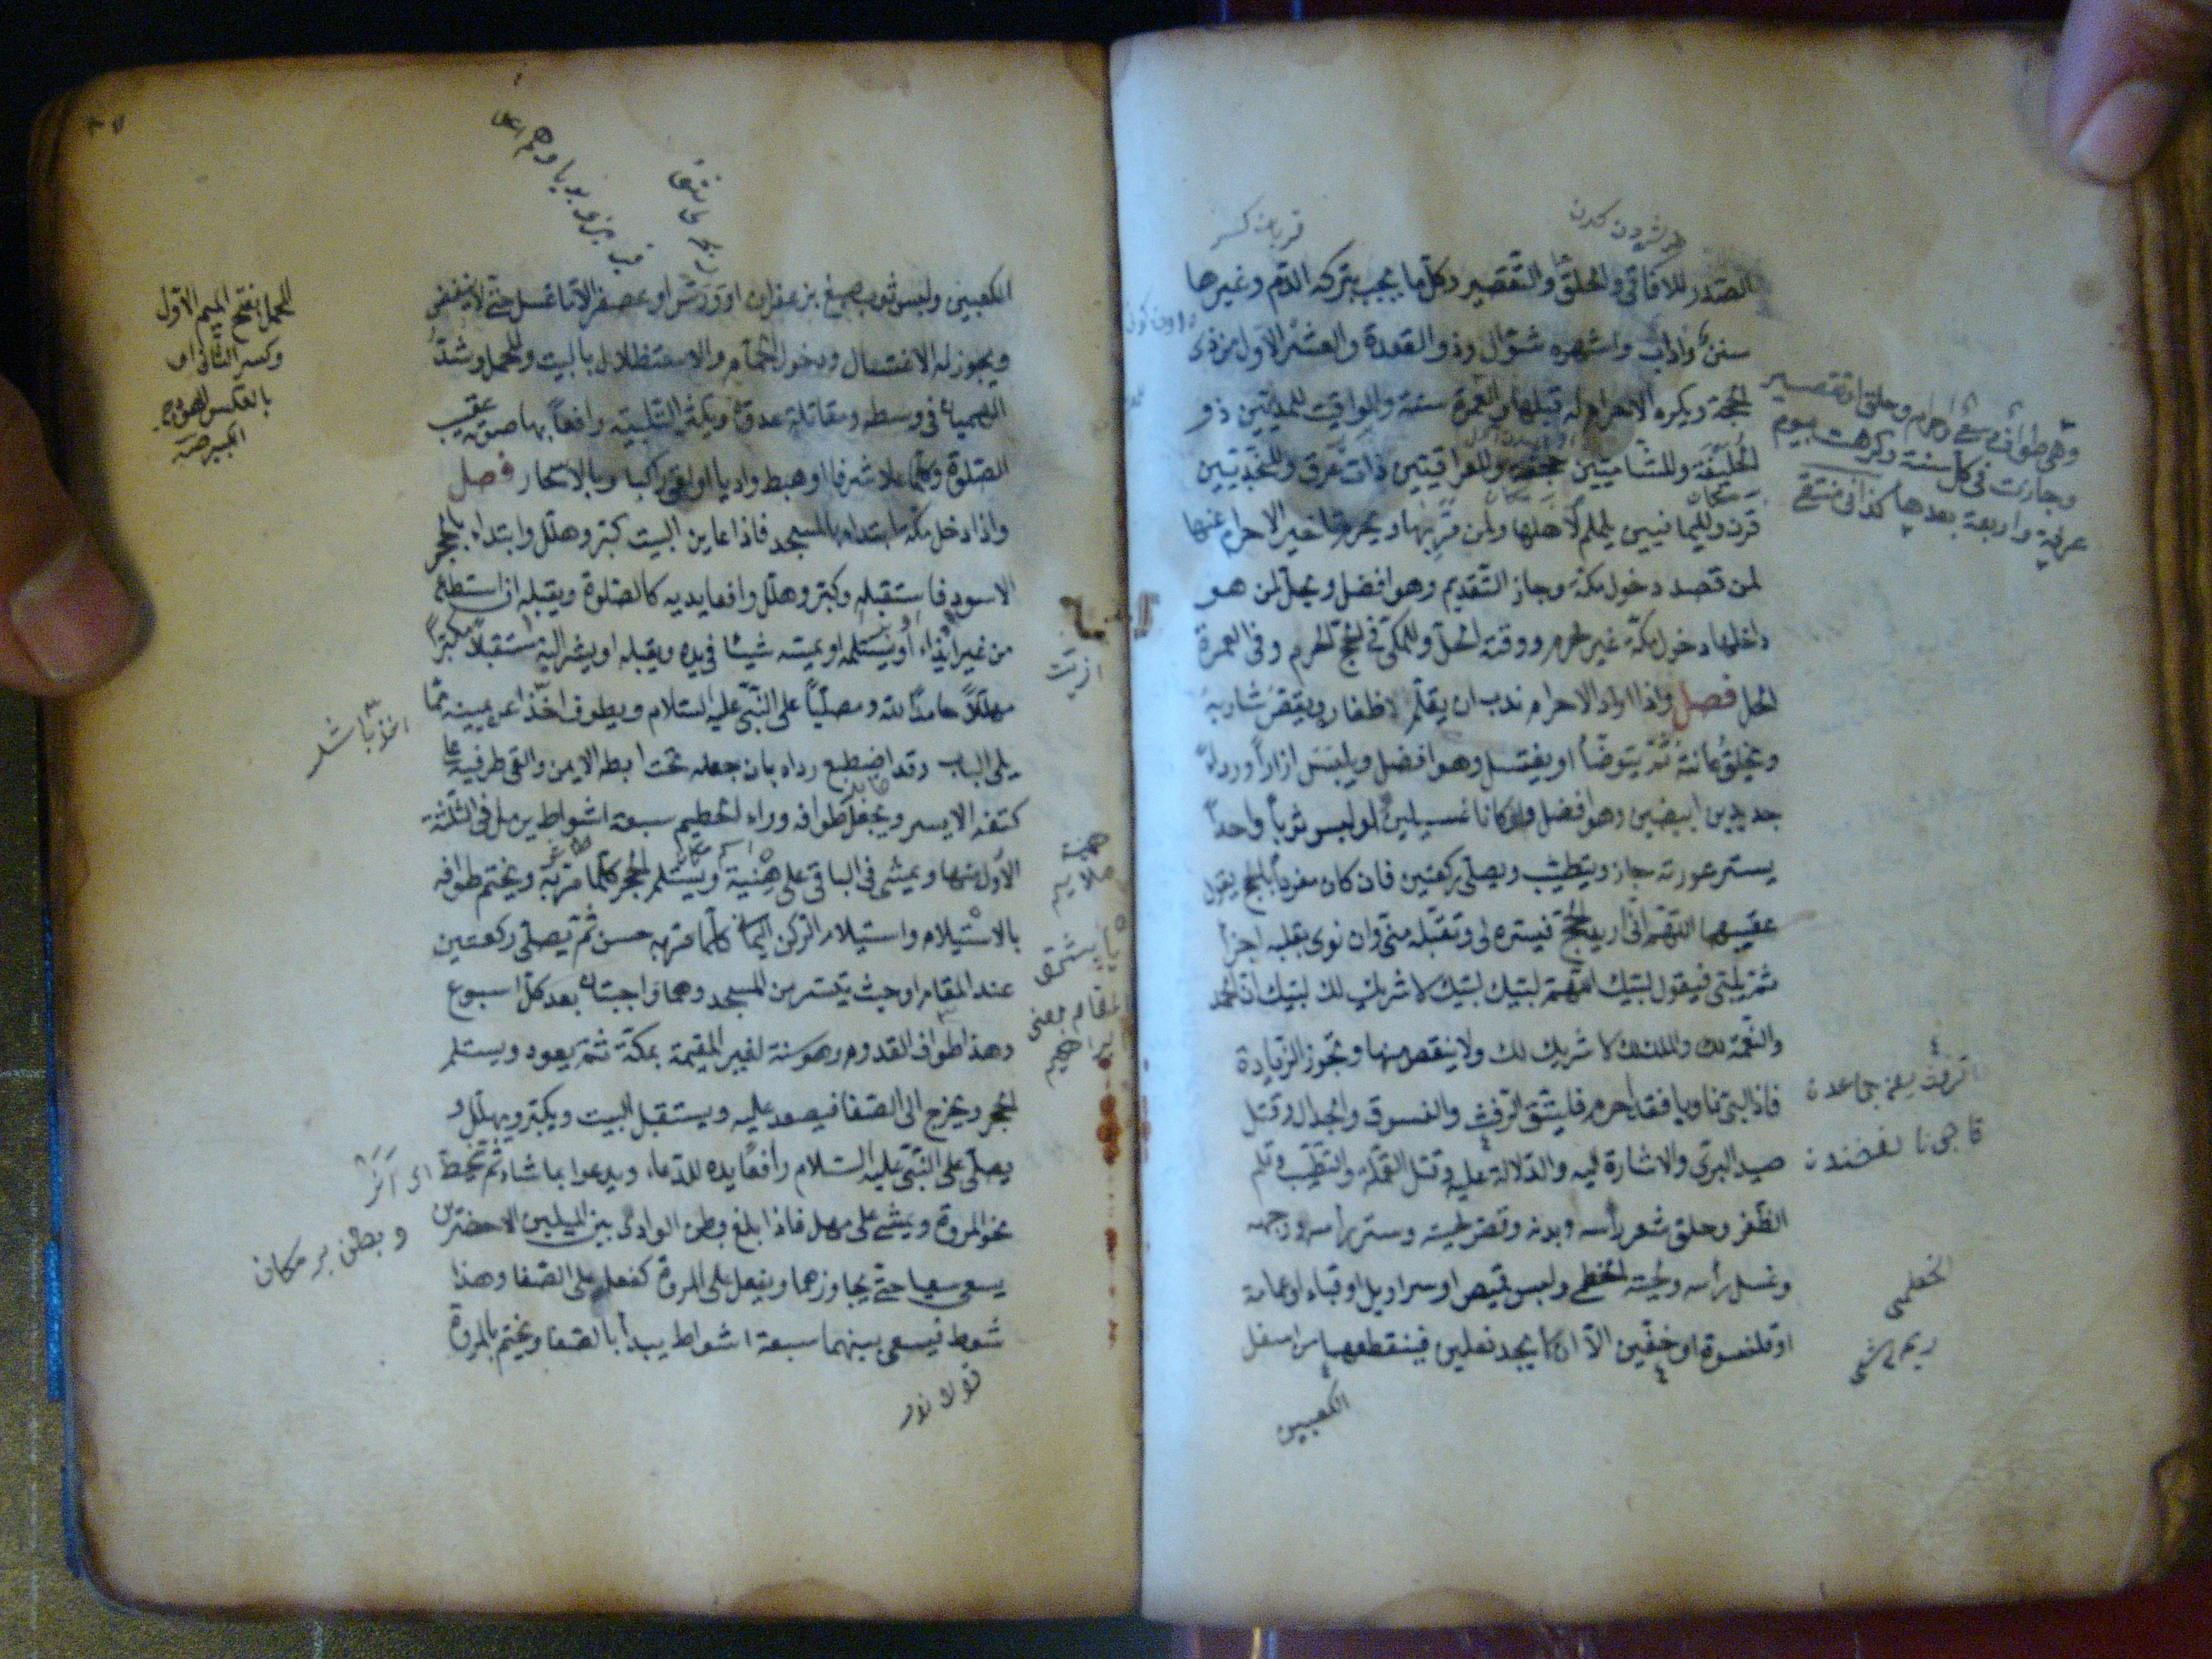 الصدر للافاقى والحلق والتقصير وكل ما يجب بتركه الدم وغيرها
سنن واداب واشهره شوال وذو القعدة والعشر الاول من ذى
الحجة ويكره الاحرام له قبلها والعمرة سنة والمواقيت للمدنيين ذو
الحليفة وللشاميين جحفة وللعراقيين ذات عرق وللنجديين
قرن ولليمانيين يلملم لاهلها ولمن مر بها ويحرم تاخير الاحرام عنها
لمن قصد دخول مكة وجاز التقديم وهو افضل ويحل لمن هو
داخلها دخول مكة غير محرم ووقته الحل وللمكى فى الحج الحرم وفى العمرة
الحل فصل واذا اراد الاحرام ندب ان يقلم اظفاره ويقص شاربه
ويحلق عانته ثم يتوضأ او يغتسل وهو افضل ويلبس ازارا ورداء
جديدين ابيضين وهو افضل ولو كانا غسيلين او لبس ثوبا واحدا
يستر عورته جاز ويتطيب ويصلى ركعتين فان كان مفردا بالحج يقول
عقيبهما اللهم انى اريد الحج فيسره لى وتقبله منى وان نوى بقلبه اجزأ
ثم يلبى فيقول لبيك اللهم لبيك لبيك لا شريك لك لبيك ان الحمد
والنعمة لك والملك لك لا شريك لك ولا ينقص منها وتجوز الزيادة
فاذا لبى ناويا فقد احرم فليتق الرفث والفسوق والجدال وقتل
صيد البر والاشارة اليه والدلالة عليه وقتل القمل والتطيب وقلم
الظفر وحلق شعر رأسه وبدنه وقص لحيته وستر رأسه ووجهه
وغسل رأسه ولحيته بالخطمى ولبس قميص او سراويل او قباء او عمامة
او قلنسوة او خفين الا ان لا يجد نعلين فيقطعهما من اسفل
الكعبين
وهى طواف وسعى واحرام وحلق او تقصير
وجازت فى كل سنة وكرهت يوم
عرفة واربعة بعدها كذا فى منتقى
الخطمى
الكعبين ولبس ثوب صبغ بزعفران او ورس او عصفر الا ما غسل حتى لا ينفض
ويجوز له الاغتسال ودخول الحمام والاستظلال بالبيت والمحمل وشد
الهميان فى وسطه ومقاتلة عدوه ويكثر التلبية رافعا بها صوته عقيب
الصلوة وكلما علا شرفا او هبط واديا او لقى ركبا وبالاسحار فصل
واذا دخل مكة ابتداء بالمسجد فاذا عاين البيت كبر وهلل وابتداء بالحجر
الاسود فاستقبله وكبر وهلل رافعا يديه كالصلوة ويقبله ان استطاع
من غير ايذاء او يستلمه او يمسه شيئا فى يده ويقبله او يشر اليه مستقبلا مكبرا
مهللا حامدا لله ومصليا على النبى عليه السلام ويطوف اخذا عن يمينه مما
يلى الباب وقد اضطبع رداه بان جعله تحت ابطه الايمن والقى طرفيه على
كتفه الايسر ويجعل طوافه وراء الحطيم سبعة اشواط يرمل فى الثلثة
الاول منها ويمشى فى الباقى على هينة ويستلم الحجر كلما مر به ويختم طوافه
بالاستيلام واستيلام الركن اليمانى كلما مر به حسن ثم يصلى ركعتين
عند المقام او حيث تيسر من المسجد وهما واجبتان بعد كل اسبوع
وهذا طواف القدوم وهو سنة لغير المقيمة بمكة ثم يعود ويستلم
الحجر ويخرج الى الصفا فيصعد عليه ويستقبل البيت ويكبر ويهلل و
يصلى على النبى عليه السلام رافعا يده للدعاء ويدعوا بما شاء ثم ينحط
نحو المروة ويمشى على مهل فاذا بلغ بطن الوادى بين الميلين الاخضرين
يسعى سعيا حتى يجاوزهما ويفعل على المروة كفعله على الصفا وهذا
شوط فيسعى بينهما سبعة اشواط يبدأ بالصفا ويختم بالمروة
المحمل بفتح الميم الاول
وكسر الثانى او
بالعكس الهودج
الكبير
اذيت